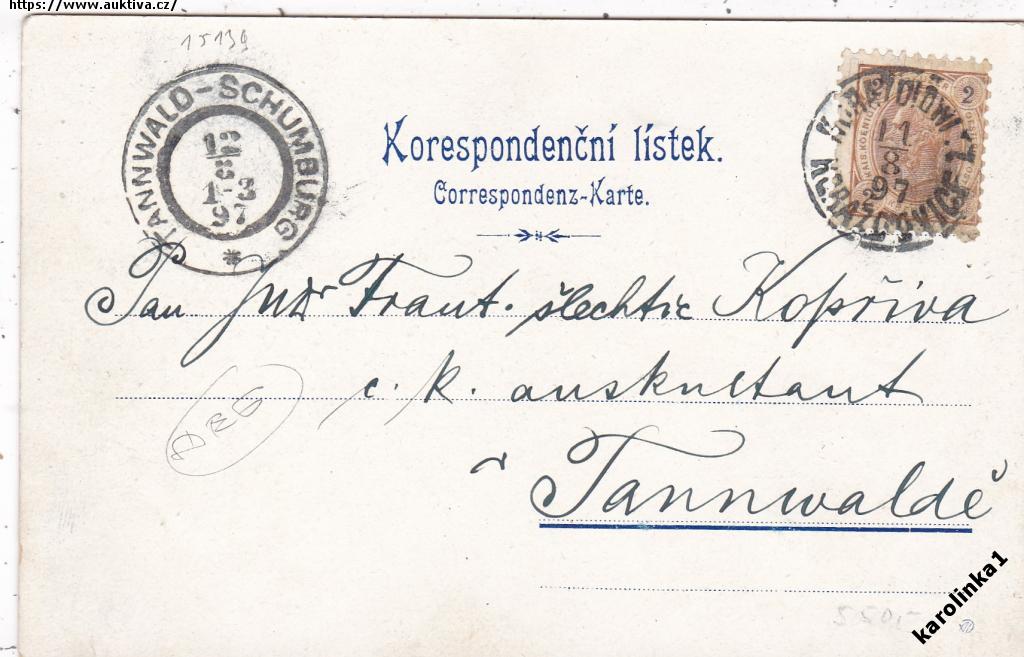 https://www.auktiva.cz/
15139
TANNWALD-SCHUMBURG
12
8
1-3
97
*
2 2
11
8
97
Korespondenční lístek.
Correspondenz-Karte.
Pan JUDr Frant. šlechtic Kopřiva
c. k. auskultant
v Tannwaldě
550,-
karolinka1